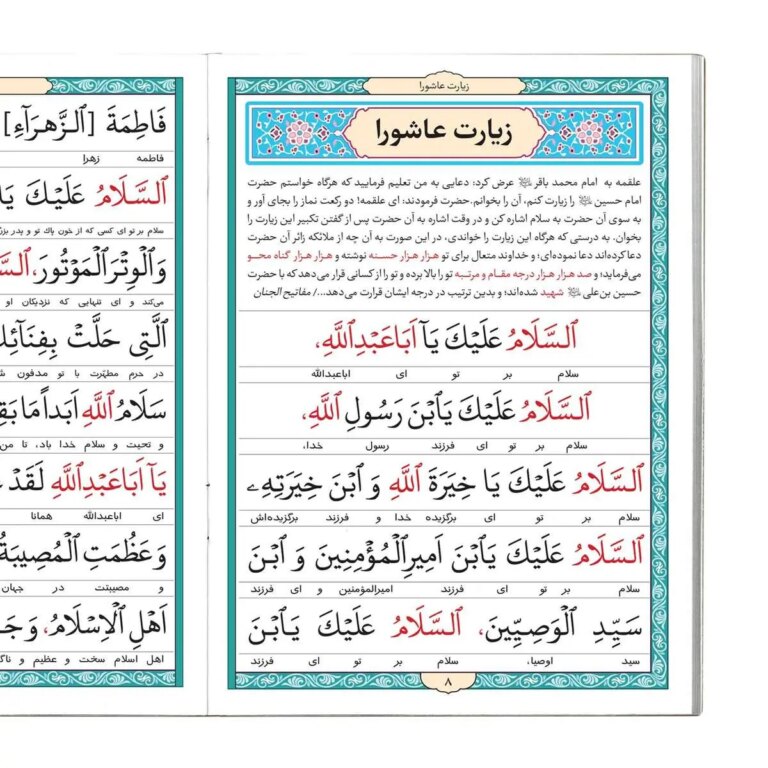 زیارت عاشورا
زیارت عاشورا
علقمه به امام محمد باقر عرض کرد: دعایی به من تعلیم فرمایید که هرگاه خواستم حضرت
امام حسین را زیارت کنم، آن را بخوانم. حضرت فرمودند: ای علقمه! دو رکعت نماز را بجای آور و
به سوی آن حضرت به سلام اشاره کن و در وقت اشاره به آن حضرت پس از گفتن تکبیر این زیارت را
بخوان. به درستی که هرگاه این زیارت را خواندی، در این صورت به آن چه از ملائکه زائر آن حضرت
دعا کرده‌اند دعا نموده‌ای؛ و خداوند متعال برای تو هزار هزار حسنه نوشته و هزار هزار گناه محو
می‌فرماید؛ و صد هزار هزار درجه مقام و مرتبه تو را بالا برده و تو را از کسانی قرار می‌دهد که با حضرت
حسین بن‌علی شهید شده‌اند؛ و بدین ترتیب در درجه ایشان قرارت می‌دهد.../ مفاتیح الجنان
اَلسَّلَامُ عَلَيْكَ يَآ اَبَاعَبْدِاللَّهِ،
سلام بر تو ای اباعبدالله
اَلسَّلَامُ عَلَيْكَ يَابْنَ رَسُولِ اللَّهِ،
سلام بر تو ای فرزند رسول خدا،
اَلسَّلَامُ عَلَيْكَ يَا خِيَرَةَ اللَّهِ وَ ابْنَ خِيَرَتِهِ
سلام بر تو ای برگزیده خدا و فرزند برگزیده‌اش
اَلسَّلَامُ عَلَيْكَ يَابْنَ اَمِيرِالْمُؤْمِنِينَ وَ ابْنَ
سلام بر تو ای فرزند امیرالمؤمنین و ای فرزند
سَيِّدِ الْوَصِيِّينَ، اَلسَّلَامُ عَلَيْكَ يَابْنَ
سید اوصیا، سلام بر تو ای فرزند
۸
فَاطِمَةَ [الزَّهرَآءِ]
فاطمه زهرا
اَلسَّلَامُ عَلَيْكَ يَا
سلام بر تو ای کسی که از خون پاک تو و پدر
وَالْوِتْرَالْمَوْتُورَ،
می‌کند و ای تنهایی که نزدیکان او
الَّتِى حَلَّتْ
در حرم مطهّرت با تو مدفون
سَلَامُ اللَّهِ اَبَداً مَا
و تحیت و سلام خدا باد، تا من
يَآ اَبَاعَبْدِاللَّهِ لَقَدْ
ای اباعبدالله همانا
وَعَظُمَتِ الْمُصِيبَةُ
و مصیبتت در جهان
اَهْلِ الْاِسْلَامِ، وَ
اهل اسلام سخت و عظیم و